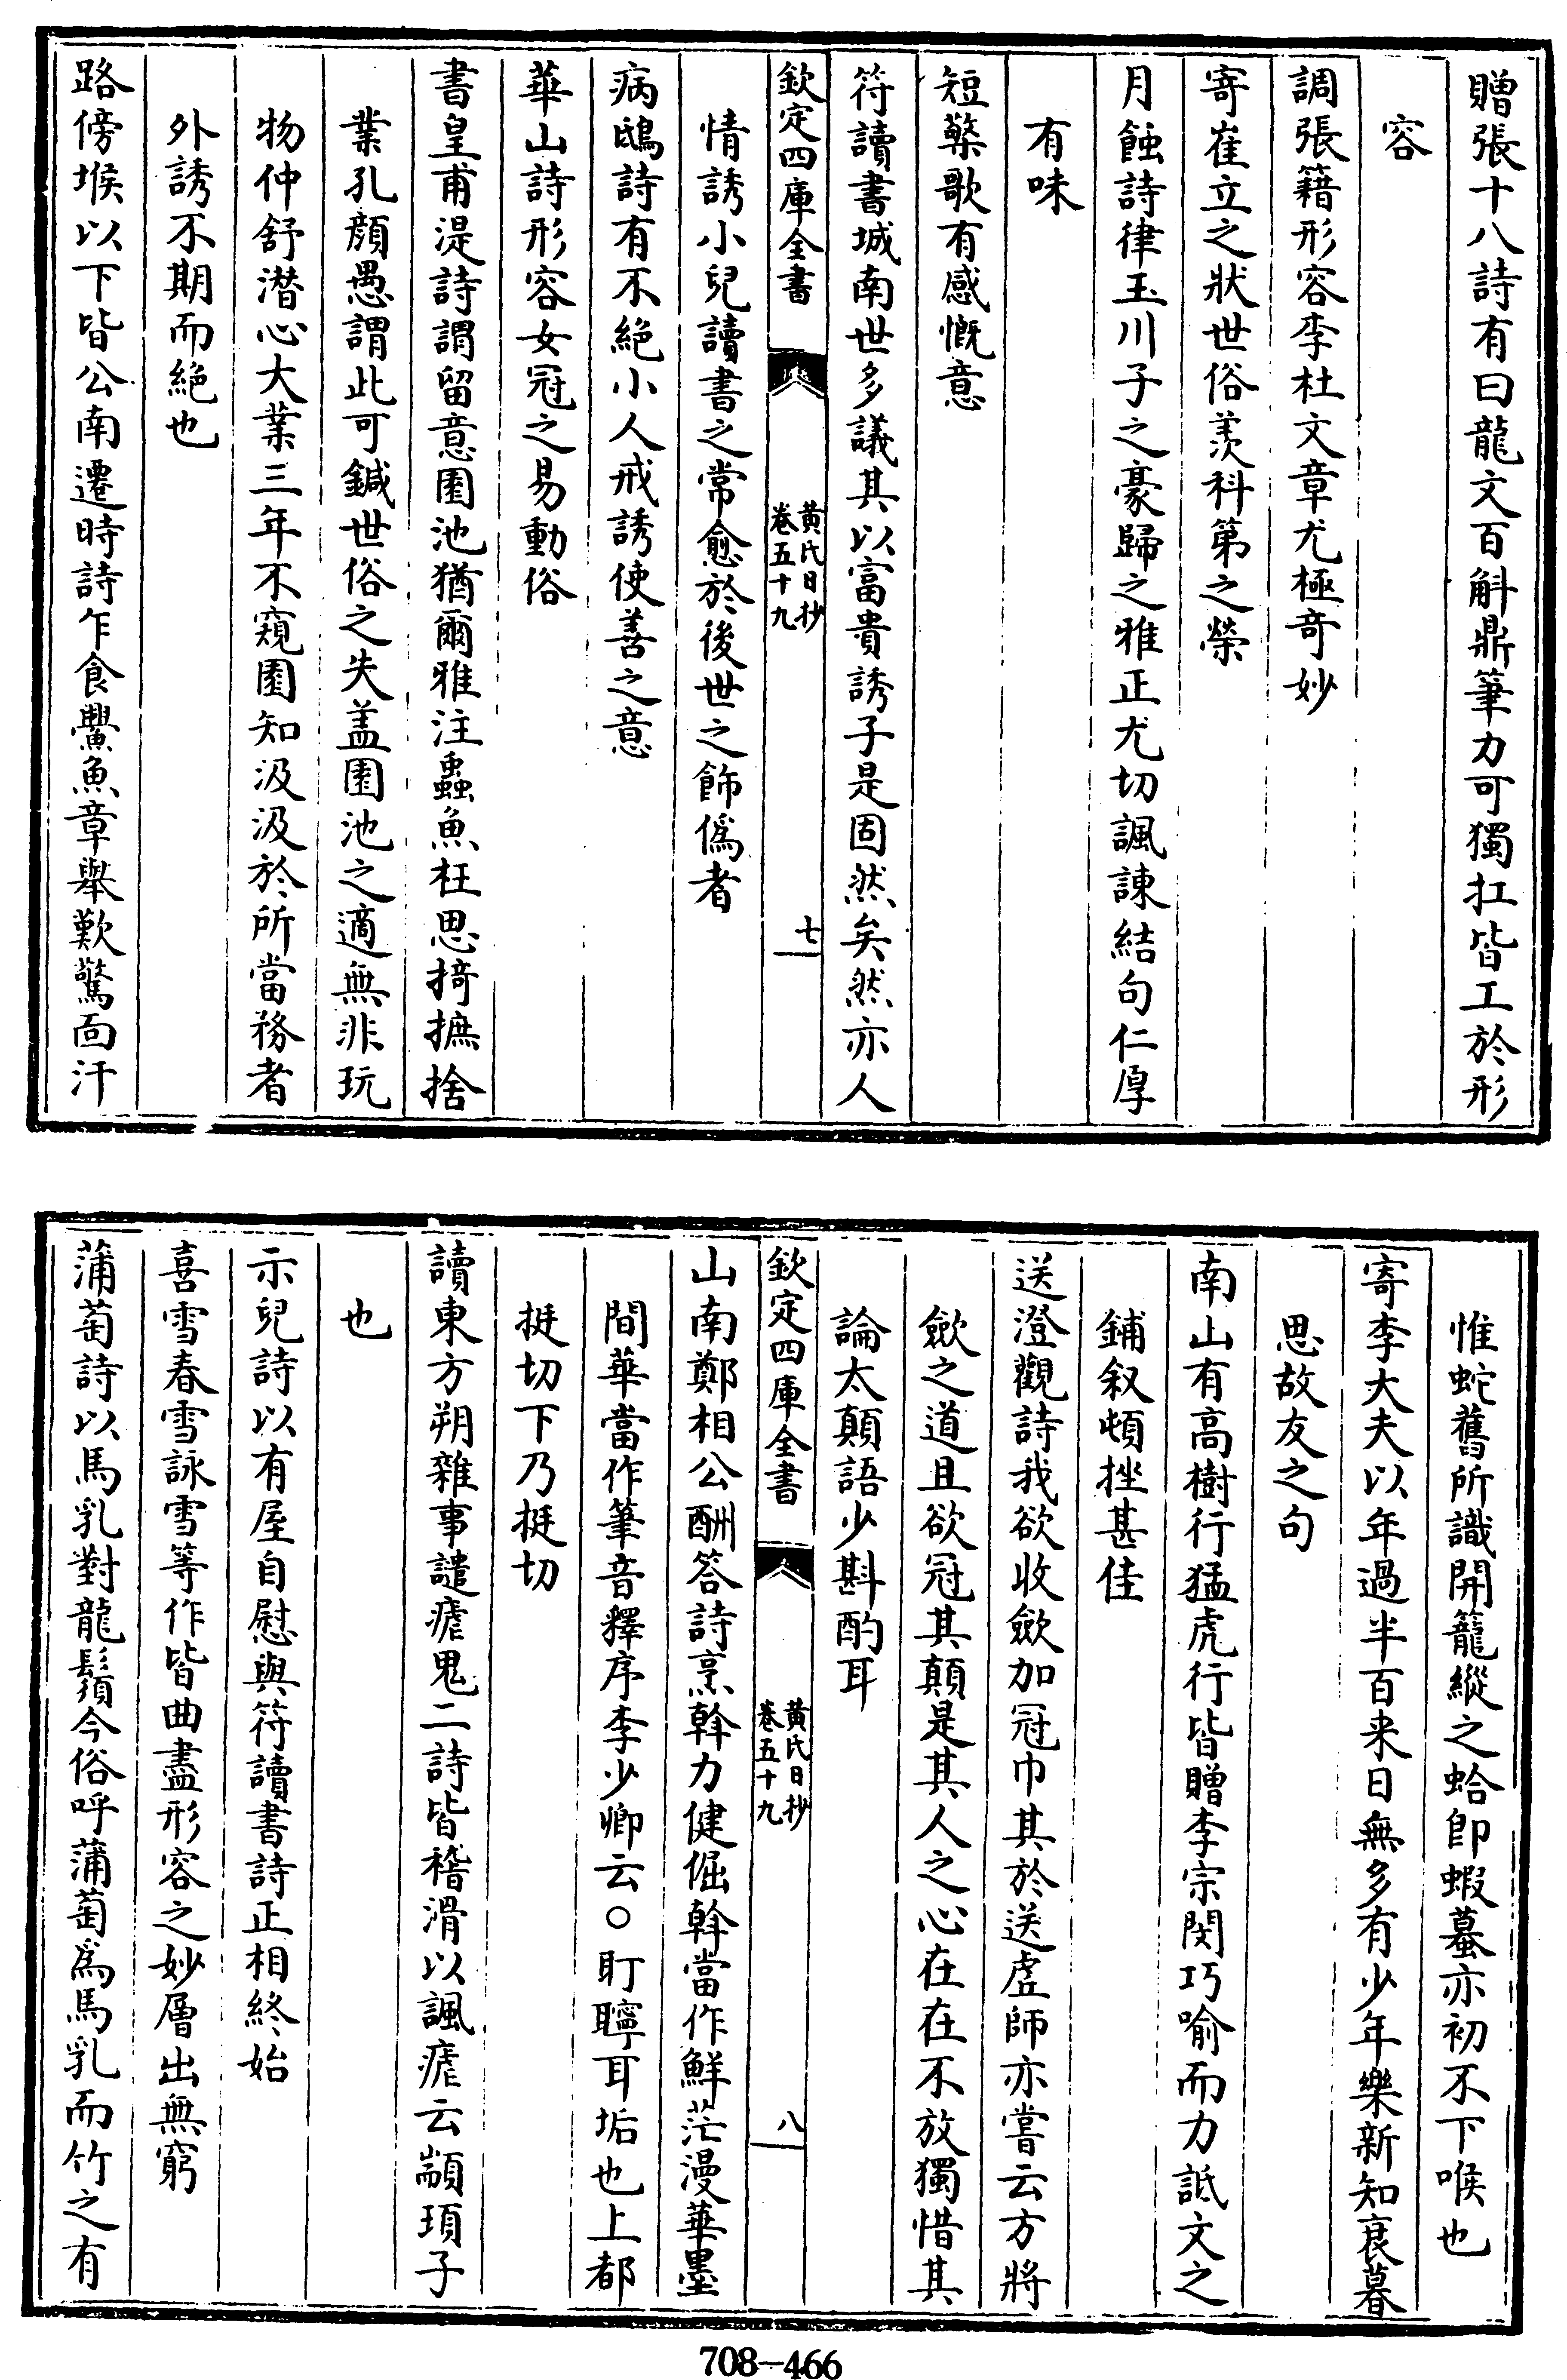 贈張十八詩有曰龍文百斛鼎筆力可獨扛皆工於形
容
調張籍形容李杜文章尤極奇妙
寄崔立之狀世俗羨科第之榮
月蝕詩律玉川子之豪歸之雅正尤切諷諌結句仁厚
有味
短檠歌有感慨意
符讀書城南世多議其以富貴誘子是固然矣然亦人
欽定四庫全書
黄氏日抄
卷五十九
七
情誘小兒讀書之常愈於後世之飾僞者
病鴟詩有不絶小人戒誘使善之意
華山詩形容女冠之易動俗
書皇甫湜詩謂留意園池猶爾雅注蟲魚枉思掎摭捨
業孔顔愚謂此可鍼世俗之失盖園池之適無非玩
物仲舒潜心大業三年不窺園知汲汲於所當務者
外誘不期而絶也
路傍堠以下皆公南遷時詩乍食鱟魚章舉歎驚面汗
惟蛇舊所識開籠縱之蛤即蝦蟇亦初不下喉也
寄李大夫以年過半百来日無多有少年樂新知衰暮
思故友之句
南山有高樹行猛虎行皆贈李宗閔巧喻而力詆文之
鋪叙頓挫甚佳
送澄觀詩我欲收歛加冠巾其於送盧師亦嘗云方將
歛之道且欲冠其顛是其人之心在在不放獨惜其
論太顛語少斟酌耳
欽定四庫全書
黄氏日抄
卷五十九
八
山南鄭相公酬答詩烹斡力健倔斡當作鮮茫漫華墨
間華當作筆音釋序李少卿云○盯聹耳垢也上都
挺切下乃挺切
讀東方朔雜事譴瘧鬼二詩皆稽滑以諷瘧云顓頊子
也
示兒詩以有屋自慰與符讀書詩正相終始
喜雪春雪詠雪等作皆曲盡形容之妙層出無窮
蒲萄詩以馬乳對龍鬚今俗呼蒲萄爲馬乳而竹之有
708-466